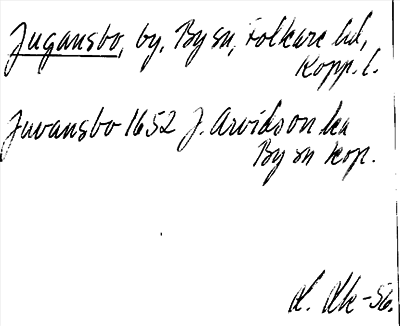 Jugansbo, by, By sn, Folkare hd,
Kopp. l.
Juvansbo 1652 J. Arvidson ka
By sn Kop.